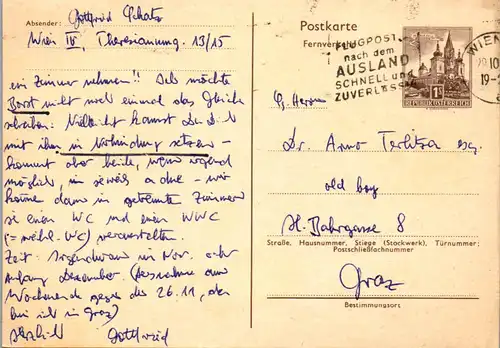 Absender: Gottfried Schatz
Wien IV, Theresianumg. 13/15
ein Zimmer nehmen!! Ich möchte
Borst nicht noch einmal das Gleiche
schreiben. Vielleicht kannst Du Dich
mit ihm in Verbindung setzen –
kommt aber beide, wenn irgend
möglich, in jeweils – wir
könnten dann in getrennte Zimmer
je einen WC und einen WWC
(= weibl. WC) veranstalten.
Zeit: Irgendwann im Nov. oder
Anfang Dezember (Ausnahme am
Wochenende gegen des 26.11, da
bin ich in Graz)
Herzlich Gottfried
Postkarte
Fernverkehr
FLUGPOST
nach dem
AUSLAND
SCHNELL und
ZUVERLÄSSIG
WIEN
1S
REPUBLIK ÖSTERREICH
Herrn
Dr. Arno Terlitza esq.
old boy
Bahngasse 8
Straße, Hausnummer, Stiege (Stockwerk), Türnummer;
Postschließfachnummer
Graz
Bestimmungsort